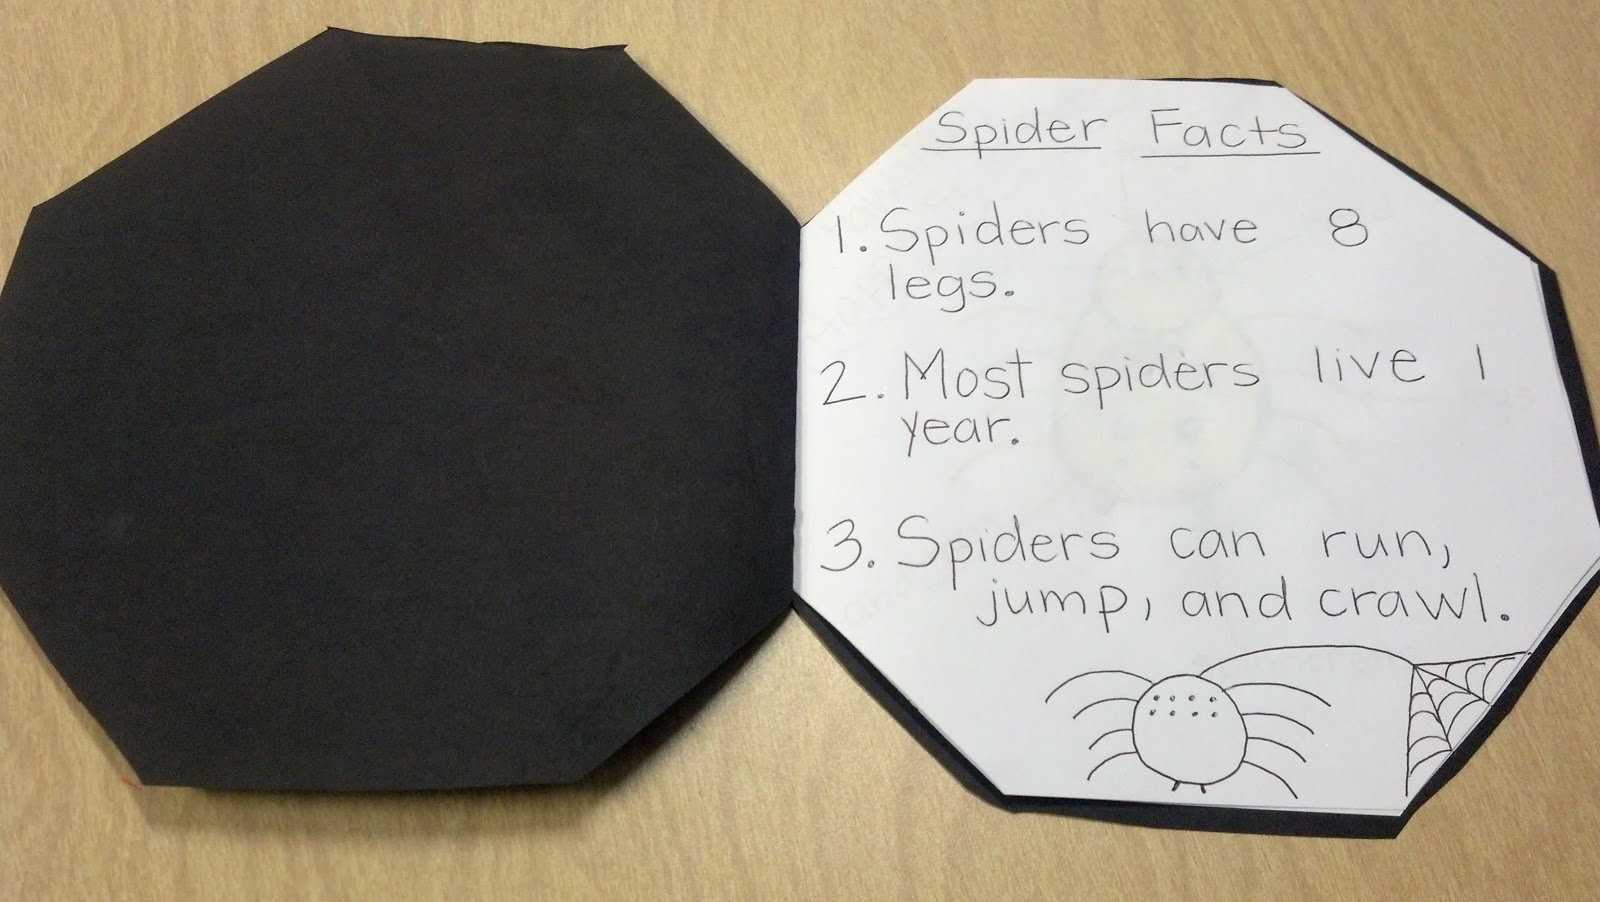 Spider Facts
1. Spiders have 8
legs.
2. Most spiders live 1
year.
3. Spiders can run,
jump, and crawl.